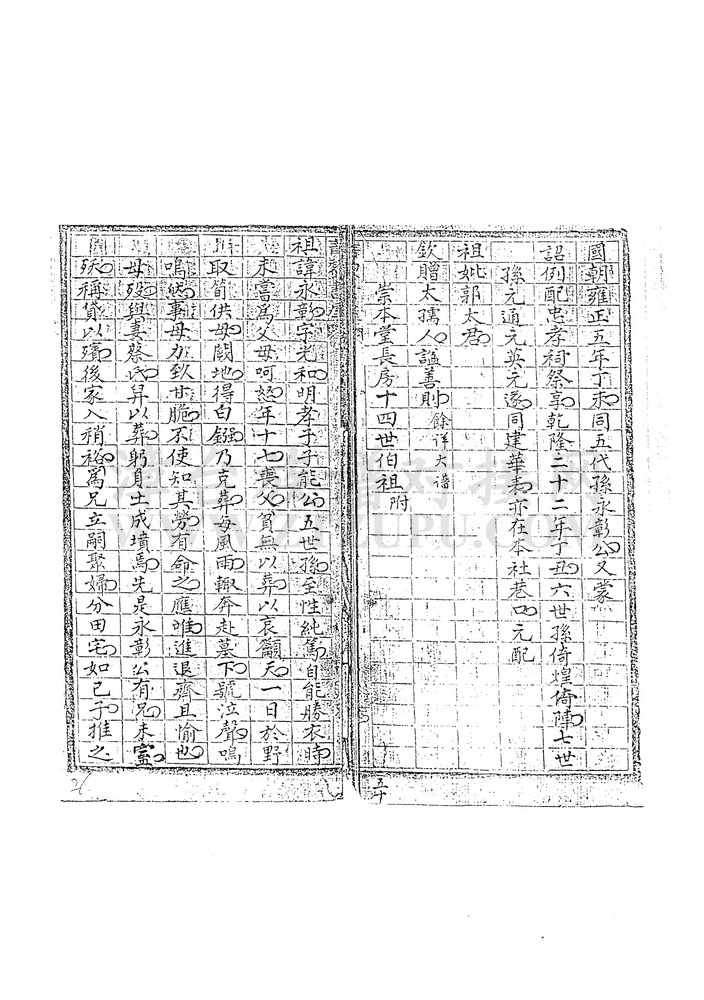 國朝雍正五年丁未同五代孫永彰公又蒙
詔例配忠孝祠祭享乾隆二十二年丁丑六世孫倚煌倚陣七世
孫元通元英元遂同建華表亦在本社巷口元配
祖妣郭太君
欽贈太孺人謚善則餘詳大譜
崇本堂長房十四世伯祖附
五十
祖諱永彰字光和明孝子于能公五世孫至性純篤自能勝衣時
未嘗為父母呵經年十七喪父貧無以葬以哀籲天一日於野
取筍供母闕地得白鏹乃克葬每風雨輒奔赴墓下號泣聲鳴
鳴然事母加致甘脆不使知其勞有命之應唯進退齊且愉也
母歿與妻蔡氏舁以葬躬負土成墳焉先是永彰公有兄未室
殀稱貸以殯後家入稍裕為兄立嗣聚婦分田宅如己子推之